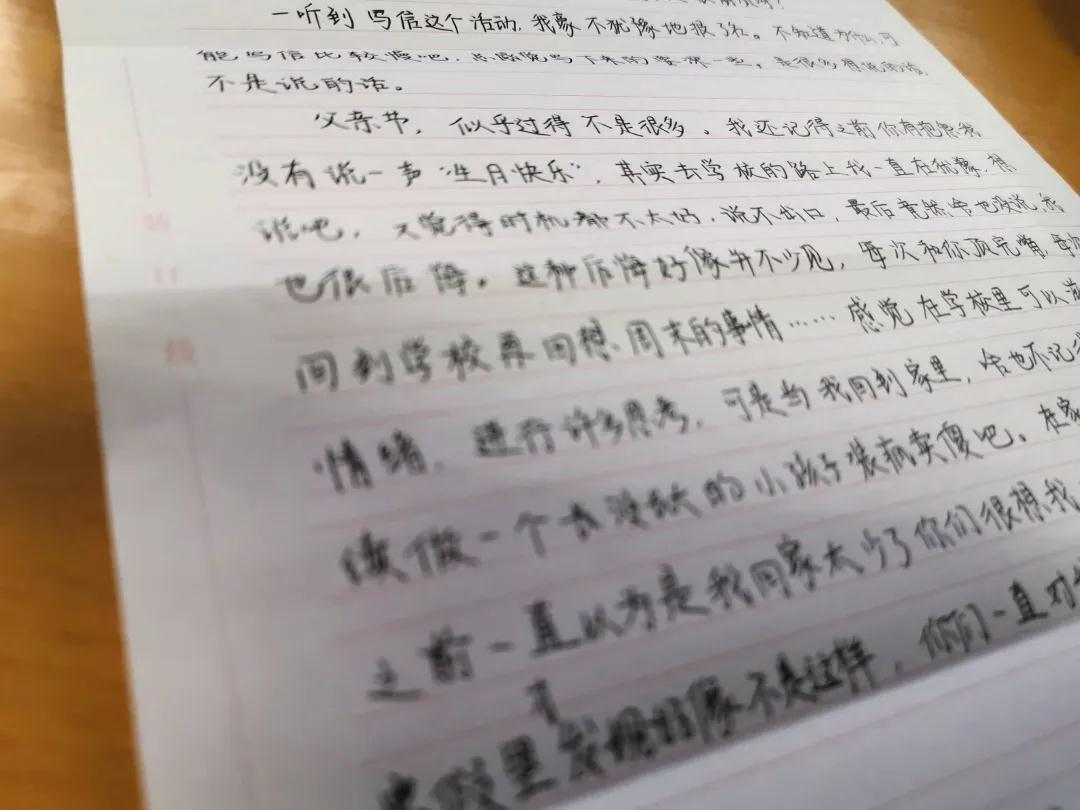 一听到写信这个活动,我毫不犹豫地报了名。不知道为什么,可
能写信比较慢吧,
不是说的话。
父亲节,似乎过得不是很多。我还记得之前你有抱怨我
没有说一声"生日快乐",其实去学校的路上我一直在犹豫,想
说吧,又觉得时机都不太好,说不出口,最后竟然啥也没说,我
也很后悔。这种后悔好像并不少见,每次和你顶完嘴,每次
回到学校再回想周末的事情……感觉在学校里可以
情绪,进行许多思考,可是当我回到家里,啥也不记
续做一个长没大的小孩子装疯卖傻吧。在家
之前一直以为是我回家太少了你们很想我
有
发现好像不是这样,你们一直对